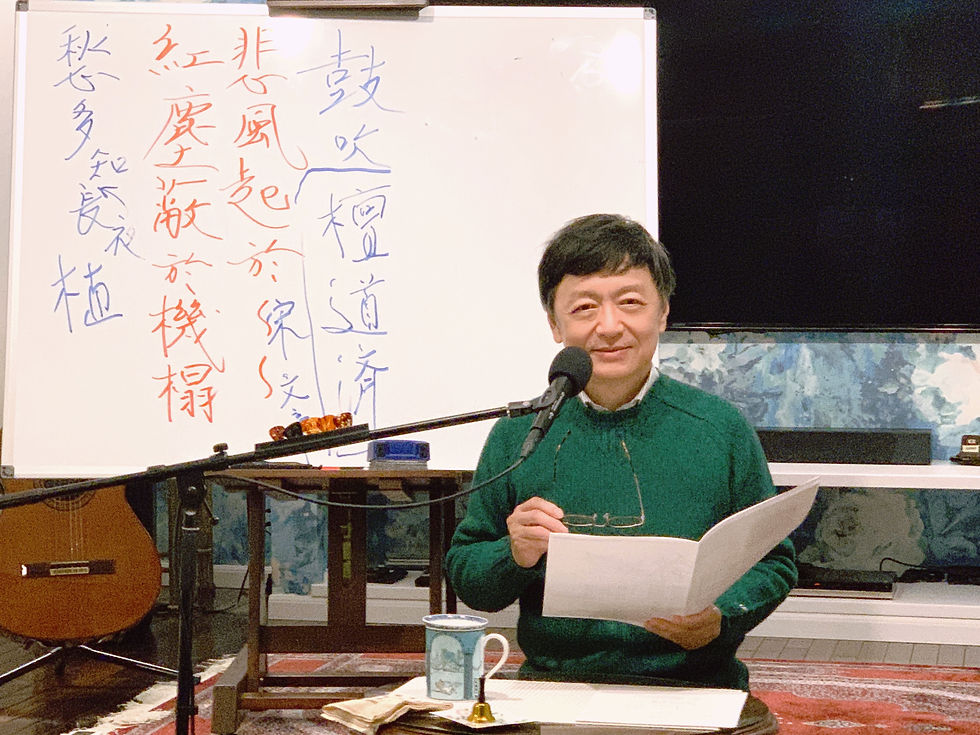 鼓吹檀道済
悲風起於
紅塵蔽於機榻
愁多知長夜
植